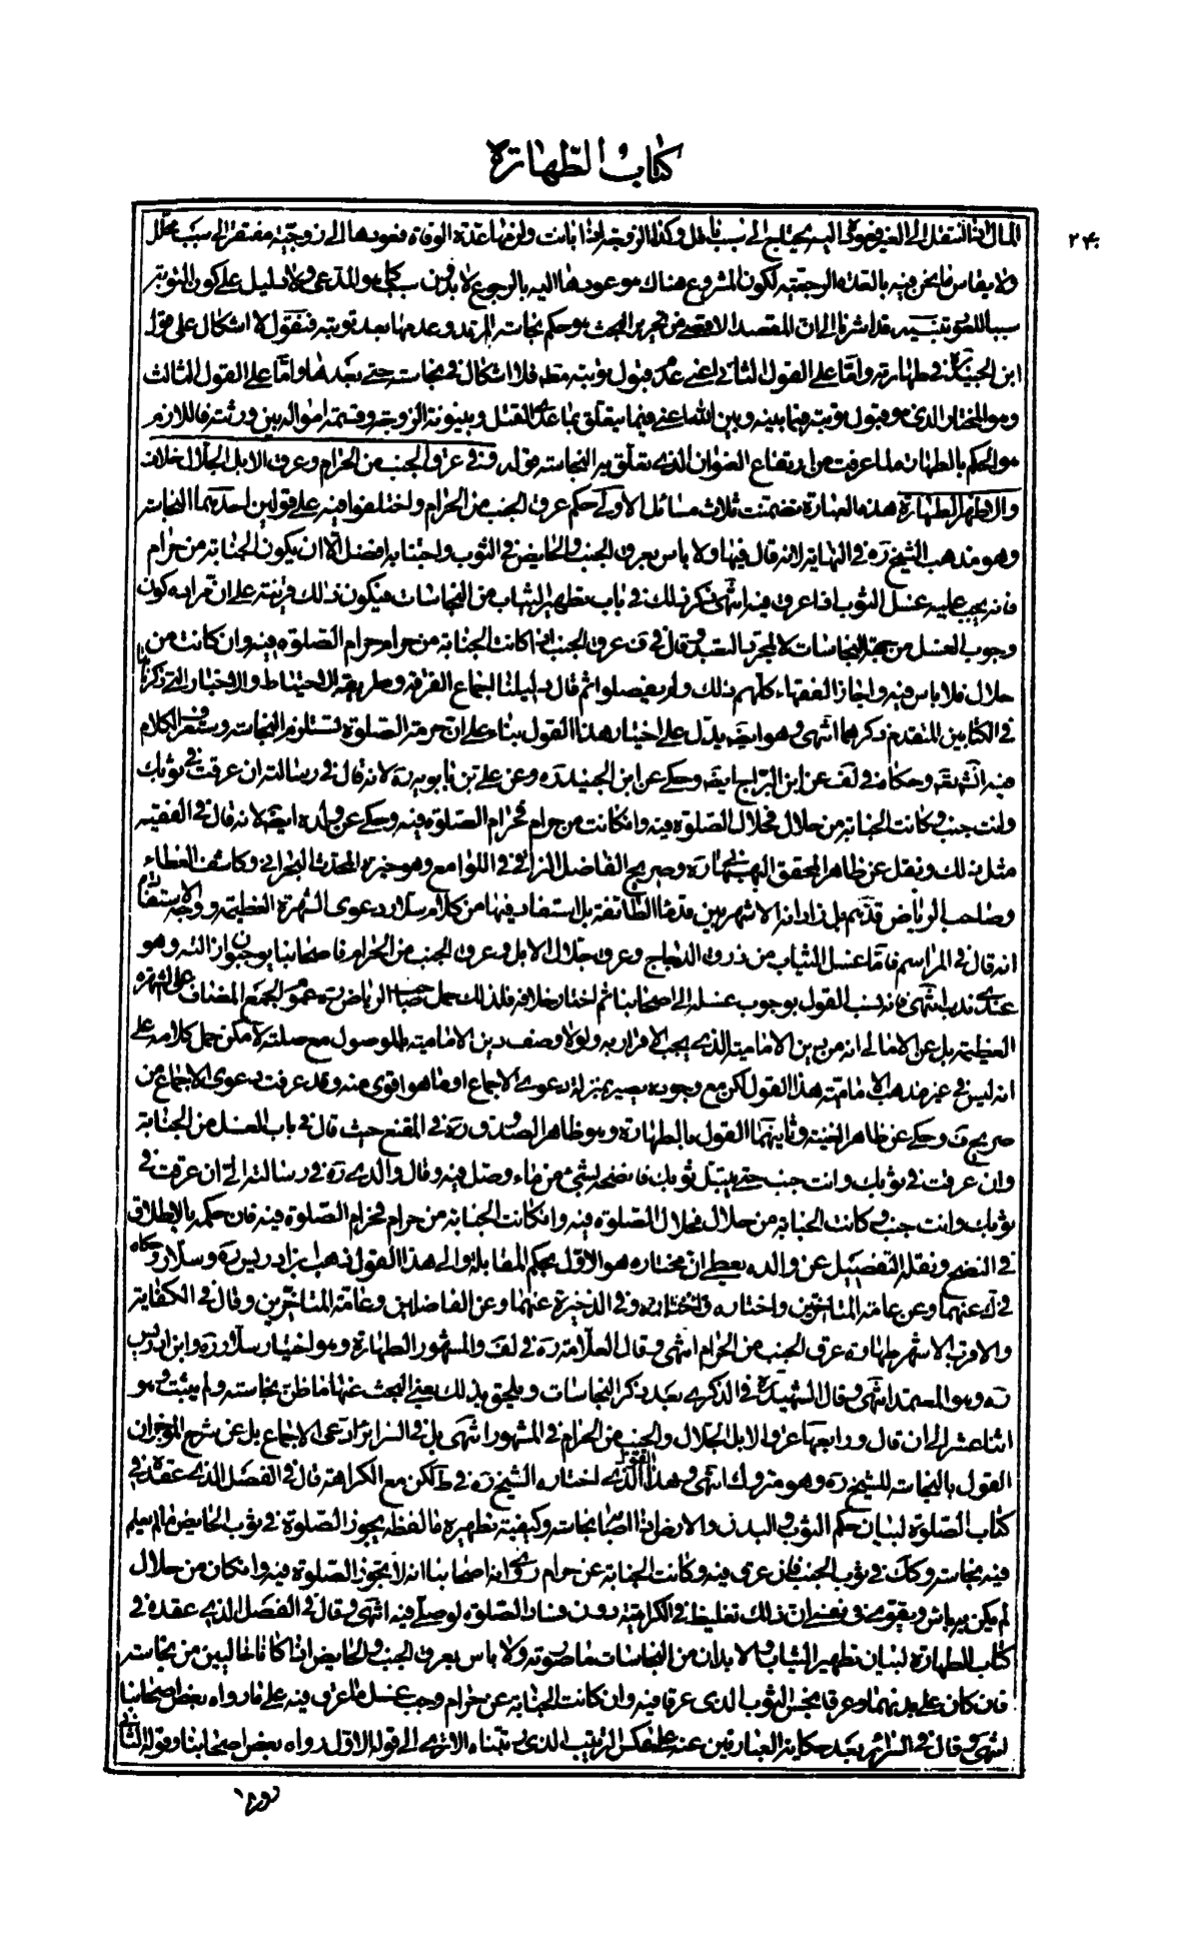 كتاب الطهارة
٢٤٠
المال اذا انتقل الى الغير فعوده اليه يحتاج الى سبب ناقل وكذا الزوجة اذا بانت ولزمها عدة الوفاة فعودها الى زوجيته مفتقر الى سبب محلل
ولا يقاس ما نحن فيه بالعدة الرجعية لكون المشروع هناك هو عودها اليه بالرجوع لا بدون سبب كما هو المدعى ولا دليل على كون التوبة
سببا للعود تنبيه قد اشرنا الى ان المقصد الاقصى من تحرير البحث هو حكم نجاسة المرتد وعدمها بعد توبته فنقول لا اشكال على قول
ابن الجنيد ره في طهارته واما على القول الثاني اعني عدم قبول توبته مطلقا فلا اشكال في نجاسته حتى بعدها واما على القول الثالث
وهو المختار الذي هو قبول توبته فيما بينه وبين الله اعني فيما يتعلق بما عدا القتل وبينونة الزوجة وقسمة امواله بين ورثته فاللازم
هو الحكم بالطهارة لما عرفت من ارتفاع العنوان الذي تعلق به النجاسة قوله وفي عرق الجنب من الحرام وعرق الابل الجلال خلاف
والاظهر الطهارة هذه العبارة تضمنت ثلاث مسائل الاولى حكم عرق الجنب من الحرام واختلفوا فيه على قولين احدهما النجاسة
وهو مذهب الشيخ ره في النهاية لانه قال فيها ولا باس بعرق الجنب والحايض في الثوب واجتنابه افضل الا ان يكون الجنابة من حرام
فانه يجب عليه غسل الثوب اذا عرق فيه انتهى ذكر ذلك في باب تطهير الثياب من النجاسات فيكون ذلك قرينة على ان مراده كون
وجوب الغسل من جهة النجاسات لا لمجرد التعبد وقال في ف عرق الجنب اذا كانت الجنابة من حرام حرام الصلوة فيه وان كانت من
حلال فلا باس فيه واجاز الفقهاء كلهم ذلك ولم يفصلوا ثم قال دليلنا اجماع الفرقة وطريقة الاحتياط والاخبار التي ذكرناها
في الكتابين المتقدم ذكرهما انتهى وهو ايضا يدل على اختيار هذا القول بناء على ان حرمة الصلوة تستلزم النجاسة وستعرف الكلام
فيه انشاء الله وحكاه في لف عن ابن البراج ايضا وحكي عن ابن الجنيد ره وعن علي بن بابويه ره لانه قال في رسالته ان عرقت في ثوبك
وانت جنب وكانت الجنابة من حلال فحلال الصلوة فيه وان كانت من حرام فحرام الصلوة فيه وحكي عن ولده ايضا لانه قال في الفقيه
مثل ذلك ونقل عن ظاهر المحقق البهبهاني ره وصريح الفاضل النراقي في اللوامع وهو خيرة المحدث البحراني وكاشف الغطاء
وصاحب الرياض قدهم بل زاد انه الاشهر بين قدماء الطائفة بل استفاد فيها من كلام سلار دعوى الشهرة العظيمة ووجه الاستفادة
انه قال في المراسم فاما غسل الثياب من ذرق الدجاج وعرق جلال الابل وعرق الجنب من الحرام فاصحابنا يوجبون ازالته وهو
عندي ندب انتهى فانه نسب القول بوجوب غسله الى اصحابنا ثم اختار خلافه فلذلك حمل صاحب الرياض ره عموم الجمع المضاف على الشهرة
العظيمة بل عن الامالي انه من دين الامامية الذي يجب الاقرار به ولولا وصف دين الامامية بالموصول مع صلته لامكن حمل كلامه على
انه ليس في غير مذهب الامامية هذا القول لكن مع وجوده يصير بمنزلة دعوى الاجماع او ما هو اقوى منه وقد عرفت دعوى الاجماع من
صريح ف وحكي عن ظاهر الغنية وثانيهما القول بالطهارة وهو ظاهر الصدوق ره في المقنع حيث قال في باب الغسل من الجنابة
وان عرقت في ثوبك وانت جنب حتى يبتل ثوبك فانضحه بشئ من ماء وصل فيه وقال والدي ره في رسالته الي ان عرقت في
ثوبك وانت جنب وكانت الجنابة من حلال فحلال الصلوة فيه وان كانت الجنابة من حرام فحرام الصلوة فيه فان حكمه بالاطلاق
في النضح ونقله التفصيل عن والده يعطي ان مختاره هو الاول بحكم المقابلة والى هذا القول ذهب ابن ادريس ره وسلار وحكاه
في ك عنهما وعن عامة المتاخرين واختاره وفي الذخيرة عنهما وعن الفاضلين وعامة المتاخرين وقال في الكفاية
والاقرب الاشهر طهارة عرق الجنب من الحرام انتهى وقال العلامة ره في لف والمشهور الطهارة وهو اختيار سلار ره وابن ادريس
ره وهو المعتمد انتهى وقال الشهيد ره في الذكرى بعد ذكر النجاسات ويلحق بذلك يعني البحث عنها ما ظن نجاسته ولم يثبت وهو
اثنا عشر الى ان قال ورابعها عرق الابل الجلال والجنب من الحرام في المشهور انتهى بل في السرائر ادعى الاجماع بل عن شرح الموجز ان
القول بالنجاسة للشيخ ره وهو متروك انتهى وهذا القول الذي اختاره الشيخ ره في ط لكن مع الكراهة قال في الفصل الذي عقده في
كتاب الصلوة لبيان حكم الثوب والبدن والارض اذا اصابته نجاسة وكيفية تطهيره ما لفظه يجوز الصلوة في ثوب الحايض ما لم يعلم
فيه نجاسة وكذلك في ثوب الجنب فان عرق فيه وكانت الجنابة عن حرام روى اصحابنا انه لا تجوز الصلوة فيه وان كان من حلال
لم يكن به باس ويقوى في نفسي ان ذلك تغليظ في الكراهية دون فساد الصلوة لو صلى فيه انتهى وقال في الفصل الذي عقده في
كتاب الطهارة لبيان تطهير الثياب والابدان من النجاسات ما صورته ولا باس بعرق الجنب والحايض اذا كانا خاليين من نجاسة
فان كان على بدنهما وعرقا نجس الثوب الذي عرقا فيه وان كانت الجنابة عن حرام وجب غسل ما عرق فيه على ما رواه بعض اصحابنا
انتهى وقال في السرائر بعد حكاية العبارتين عنه على عكس الترتيب الذي بيناه الا ترى الى قوله الاول رواه بعض اصحابنا وقوله الثاني